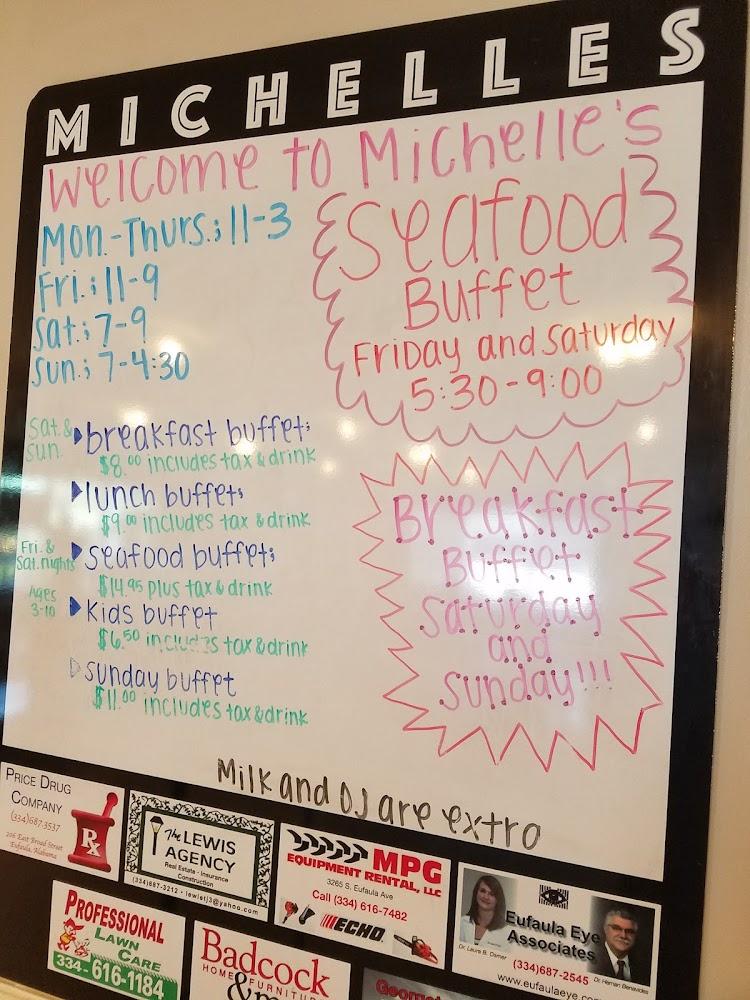 MICHELLES
Welcome to Michelle's
Mon.-Thurs.; 11-3
Fri.; 11-9
Sat.; 7-9
Sun.; 7-4:30
Seafood
Buffet
Friday and Saturday
5:30-9:00
Sat. &
Sun.
breakfast buffet;
$8.00 includes tax & drink
lunch buffet;
$9.00 includes tax & drink
Fri. &
Sat. nights
seafood buffet;
$14.95 plus tax & drink
Ages
3-10
Kids buffet
$6.50 includes tax & drink
sunday buffet
$11.00 includes tax & drink
Breakfast
Buffet
Saturday
and
Sunday!!!
Milk and OJ are extro
PRICE DRUG
COMPANY
(334)687-3537
206 East Broad Street
Eufaula, Alabama
Rx
The LEWIS
AGENCY
Real Estate · Insurance
Construction
(334)687-3212 · lewistj3@yahoo.com
MPG
EQUIPMENT RENTAL, LLC
3265 S. Eufaula Ave
Call (334) 616-7482
ECHO
Eufaula Eye
Associates
Dr. Laura B. Damer
(334)687-2545
Dr. Hernan Benavides
www.eufaulaeye.co
PROFESSIONAL
LAWN
CARE
334-616-1184
Badcock
HOME FURNITURE
& more
Geomet